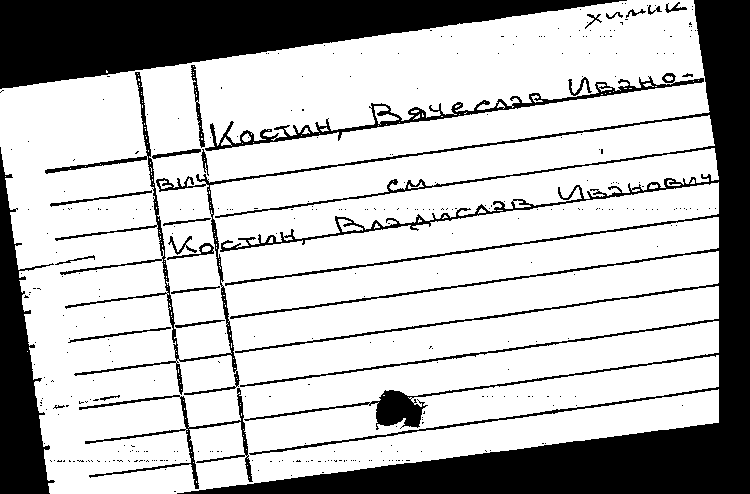 химик
Костин, Вячеслав Ивано-
вич
см.
Костин, Владислав Иванович